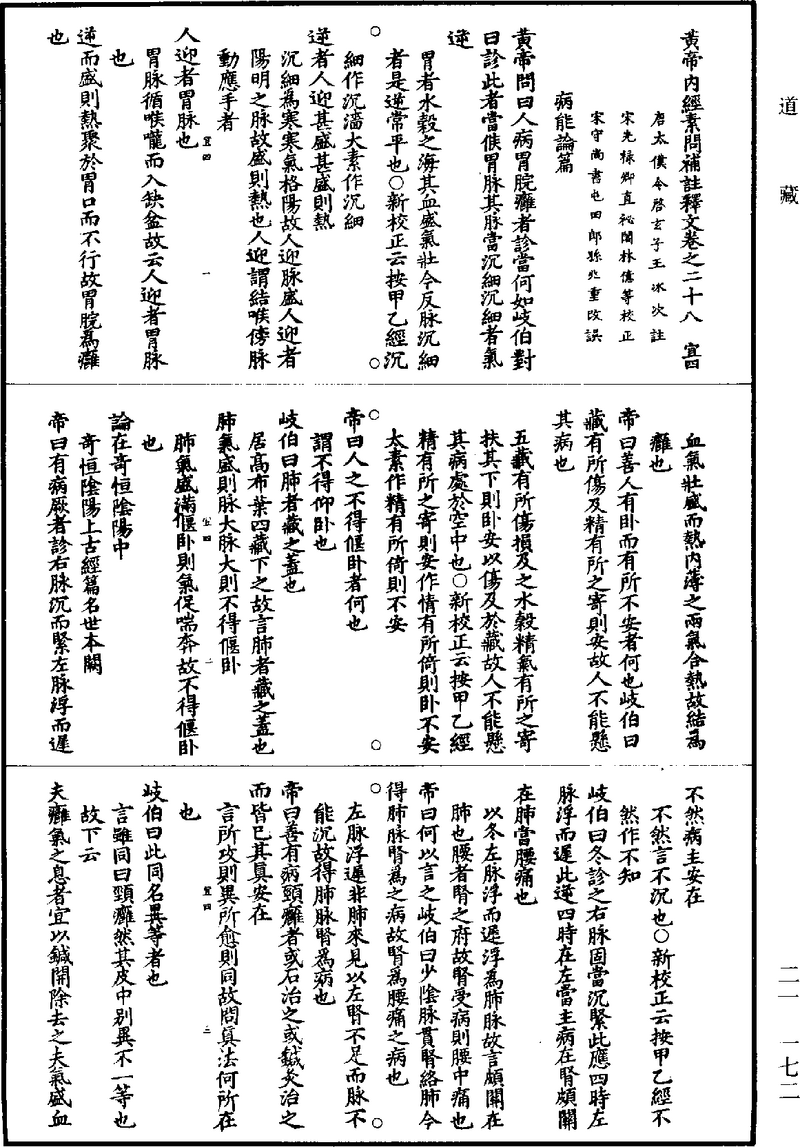 道藏
黃帝內經素問補註釋文卷之二十八 宜四
唐太僕令啓玄子王冰次註
宋光祿卿直祕閣林億等校正
宋守尚書屯田郎孫兆重改誤
病能論篇
黃帝問曰人病胃脘癰者診當何如岐伯對
曰診此者當候胃脉其脉當沉細沉細者氣
逆
胃者水穀之海其血盛氣壯今反脉沉細
者是逆常平也○新校正云按甲乙經沉
細作沉濇太素作沉細
逆者人迎甚盛甚盛則熱
沉細為寒寒氣格陽故人迎脉盛人迎者
陽明之脉故盛則熱也人迎謂結喉傍脉
動應手者
宜四 一
人迎者胃脉也
胃脉循喉嚨而入缺盆故云人迎者胃脉
也
逆而盛則熱聚於胃口而不行故胃脘為癰
也
血氣壯盛而熱內薄之兩氣合熱故結為
癰也
帝曰善人有卧而有所不安者何也岐伯曰
藏有所傷及精有所之寄則安故人不能懸
其病也
五藏有所傷損及之水穀精氣有所之寄
扶其下則卧安以傷及於藏故人不能懸
其病處於空中也○新校正云按甲乙經
精有所之寄則安作情有所倚則卧不安
太素作精有所倚則不安
帝曰人之不得偃卧者何也
謂不得仰卧也
岐伯曰肺者藏之蓋也
居高布葉四藏下之故言肺者藏之蓋也
肺氣盛則脉大脉大則不得偃卧
宜四 二
肺氣盛滿偃卧則氣促喘奔故不得偃卧
也
論在奇恒陰陽中
奇恒陰陽上古經篇名世本闕
帝曰有病厥者診右脉沉而緊左脉浮而遲
不然病主安在
不然言不沉也○新校正云按甲乙經不
然作不知
岐伯曰冬診之右脉固當沉緊此應四時左
脉浮而遲此逆四時在左當主病在腎頗關
在肺當腰痛也
以冬左脉浮而遲浮為肺脉故言頗關在
肺也腰者腎之府故腎受病則腰中痛也
帝曰何以言之岐伯曰少陰脉貫腎絡肺今
得肺脉腎為之病故腎為腰痛之病也
左脉浮遲非肺來見以左腎不足而脉不
能沉故得肺脉腎為病也
帝曰善有病頸癰者或石治之或鍼灸治之
而皆已其真安在
言所攻則異所愈則同故問真法何所在
宜四 三
也
岐伯曰此同名異等者也
言雖同曰頸癰然其皮中別異不一等也
故下云
夫癰氣之息者宜以鍼開除去之夫氣盛血
二一 一七二